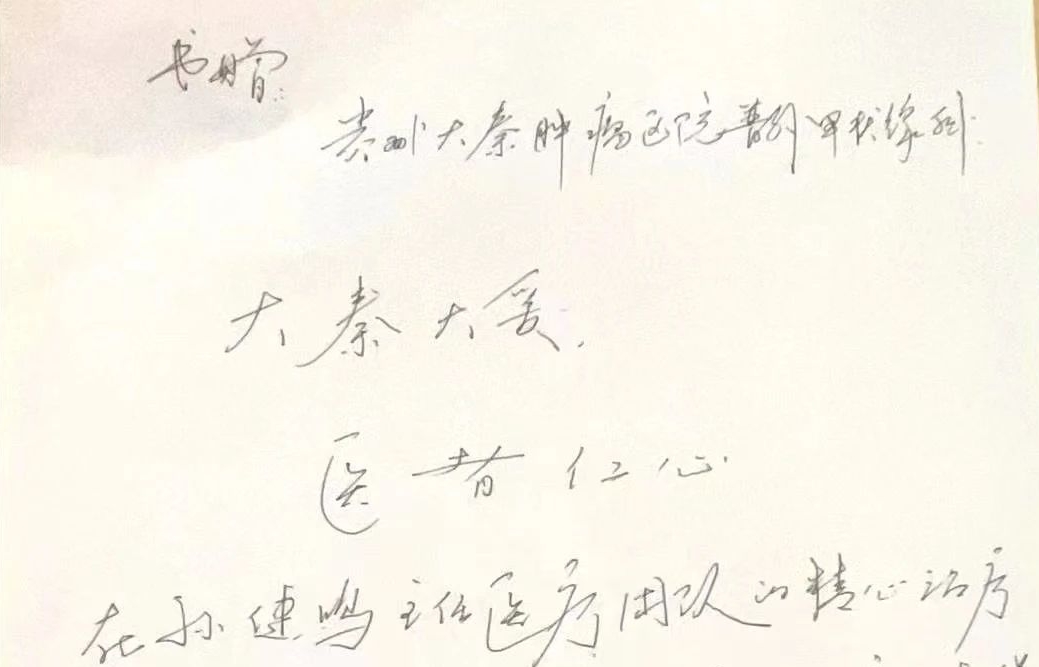 书赠:
贵州大秦肿瘤医院普外甲状腺科:
大秦大爱,
医者仁心.
在孙健鸣主任医疗团队的精心治疗